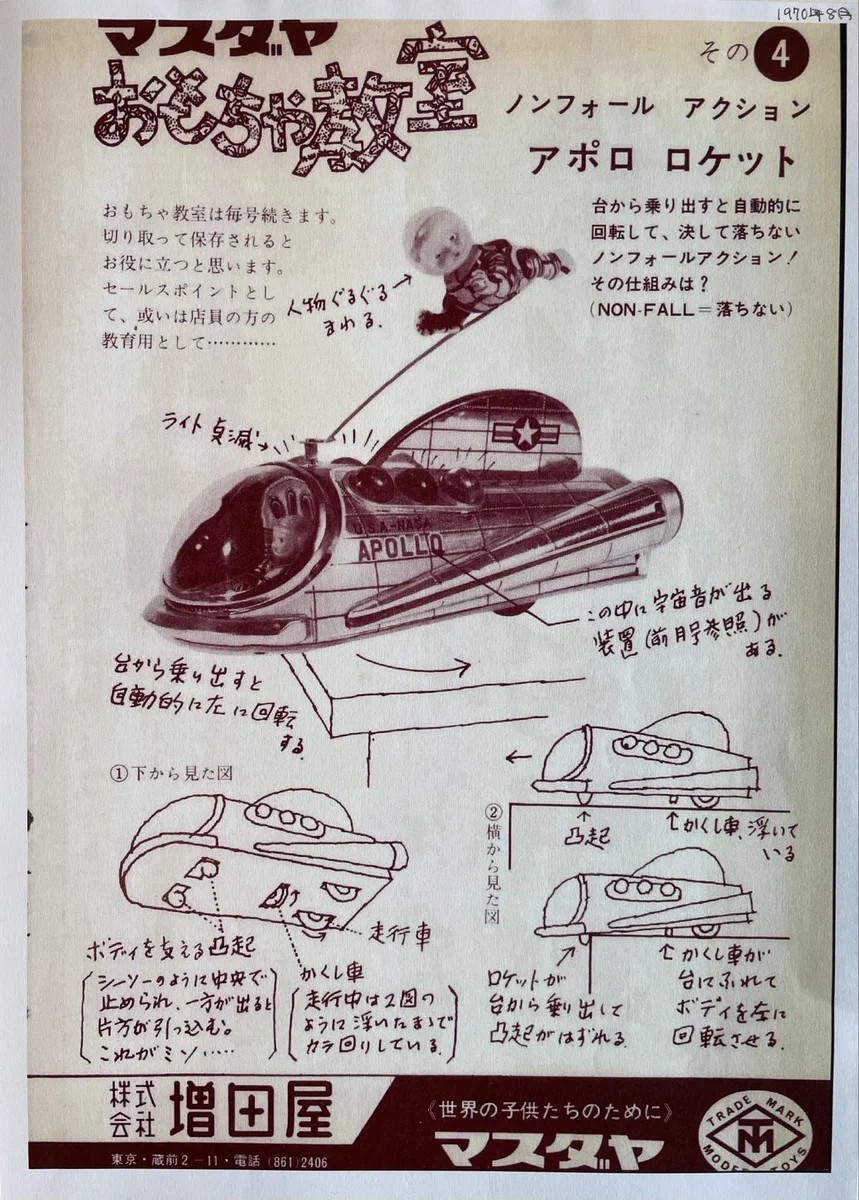 1970年8月
マスダヤ
おもちゃ教室
その4
ノンフォール アクション
アポロ ロケット
おもちゃ教室は毎号続きます。
切り取って保存されると
お役に立つと思います。
セールスポイントとし
て、或いは店員の方の
教育用として…………
台から乗り出すと自動的に
回転して、決して落ちない
ノンフォールアクション!
その仕組みは?
(NON-FALL=落ちない)
人物ぐるぐる
まわる.
ライト点滅
U.S.A-NASA
APOLLO
この中に宇宙音が出る
装置(前月号参照)が
ある.
台から乗り出すと
自動的に左に回転
する.
①下から見た図
ボディを支える凸起
(シーソーのように中央で
止められ、一方が出ると
片方が引っ込む。
これがミソ……)
走行車
かくし車
(走行中は2図の
ように浮いたままで
カラ回りしている.)
②横から見た図
凸起
かくし車、浮いて
いる
ロケットが
台から乗り出して
凸起がはずれる.
かくし車が
台にふれて
ボディを左に
回転させる.
株式
会社 増田屋
東京・蔵前2-11・電話(861)2406
《世界の子供たちのために》
マスダヤ
TRADE MARK
TM
MODERN TOYS